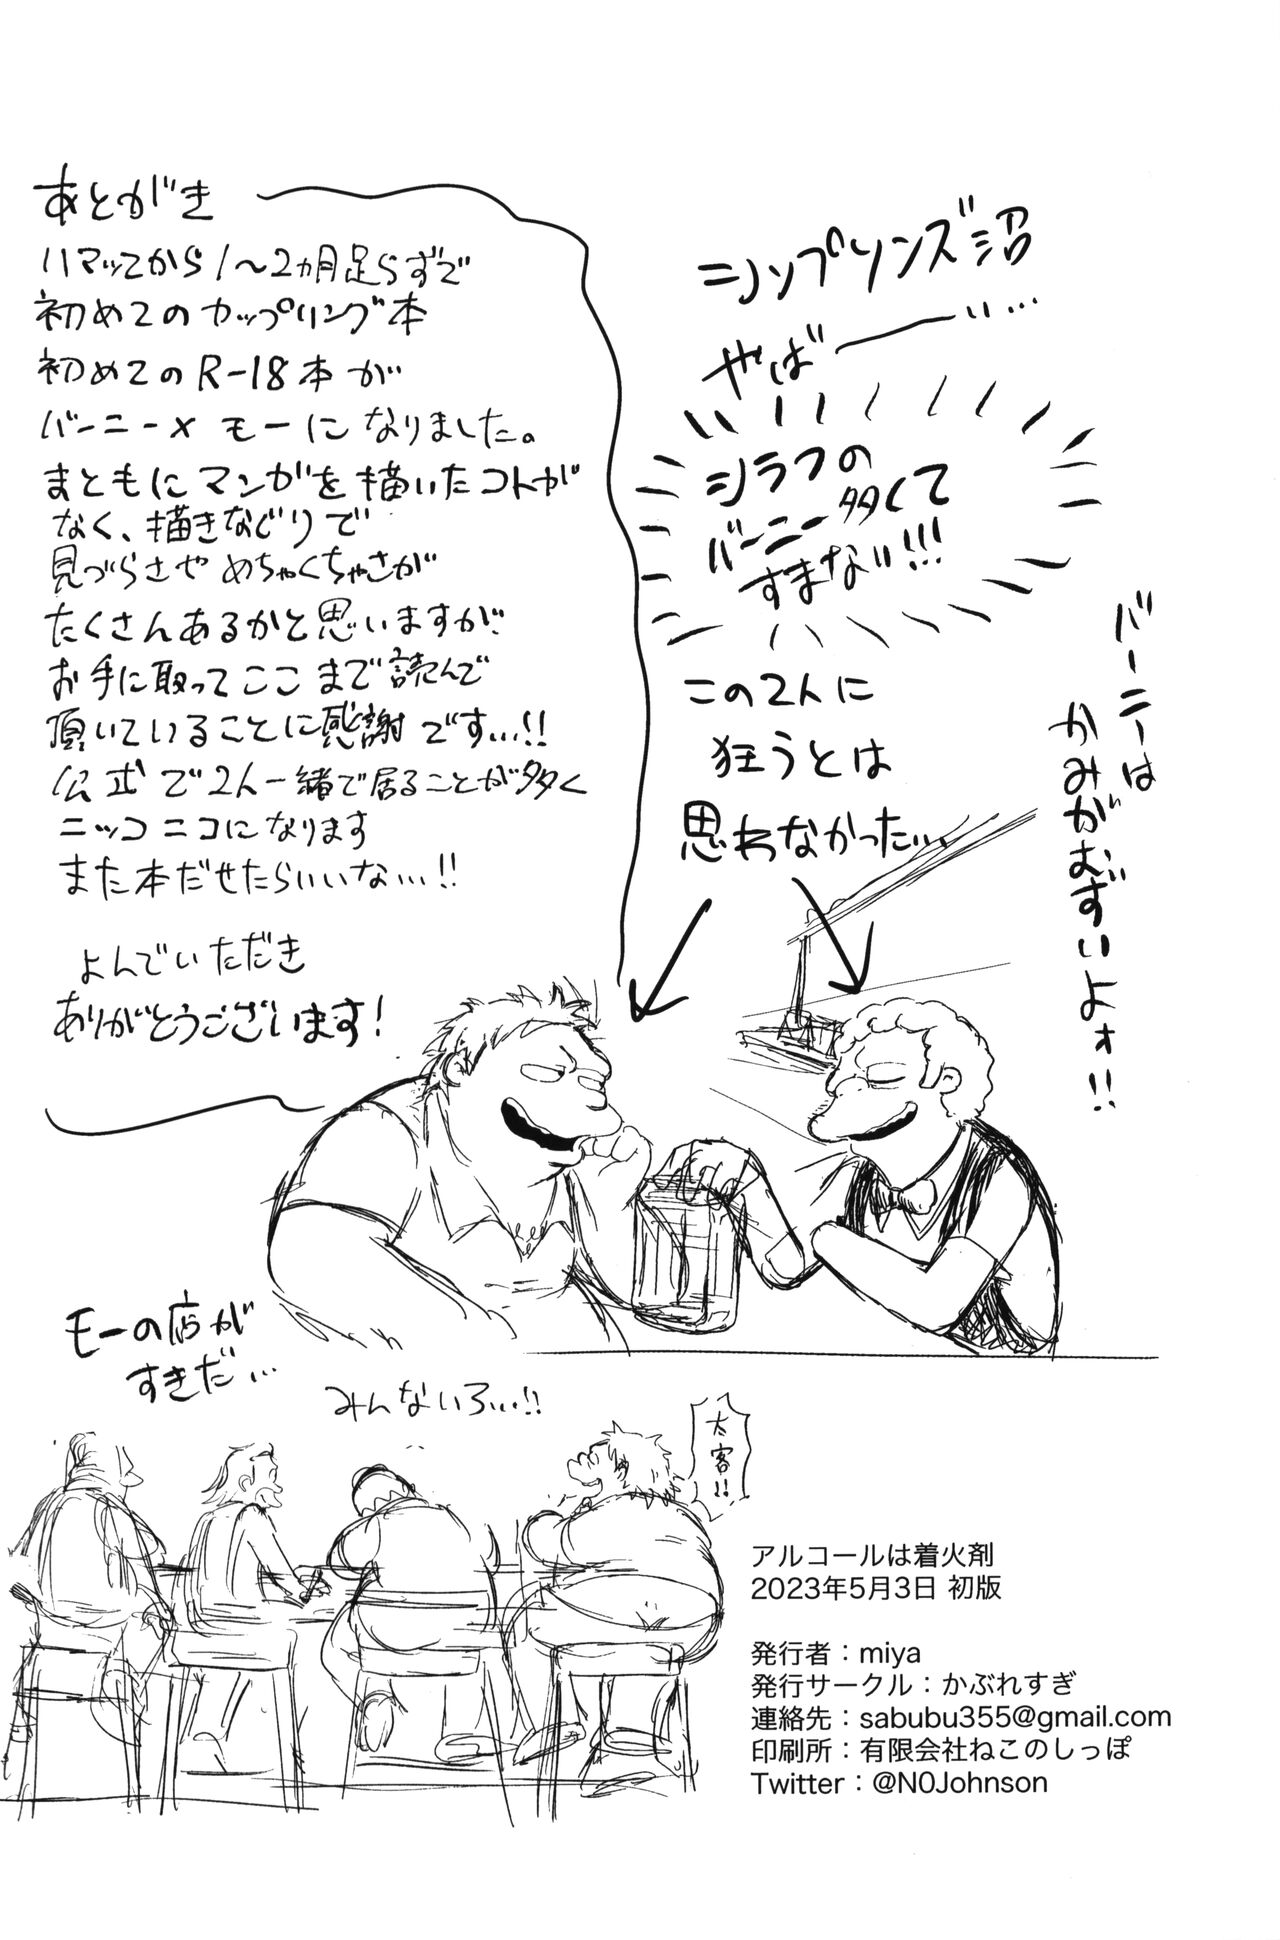 あとがき
ハマッてから1〜2ヵ月足らずで
初めてのカップリング本
初めてのR-18本が
バーニー×モーになりました。
まともにマンガを描いたコトが
なく、描きなぐりで
見づらさやめちゃくちゃさが
たくさんあるかと思いますが
お手に取ってここまで読んで
頂いていることに感謝です...!!
公式で2人一緒で居ることが多く
ニッコニコになります
また本だせたらいいな...!!
よんでいただき
ありがとうございます!
シンプソンズ沼
やばーい...
シラフの
バーニー多くて
すまない!!!
この2人に
狂うとは
思わなかった...
バーニーは
かみがむずいよォ!!
モーの店が
すきだ...
みんないる...!!
太客!!
アルコールは着火剤
2023年5月3日 初版
発行者：miya
発行サークル：かぶれすぎ
連絡先：sabubu355@gmail.com
印刷所：有限会社ねこのしっぽ
Twitter：@N0Johnson